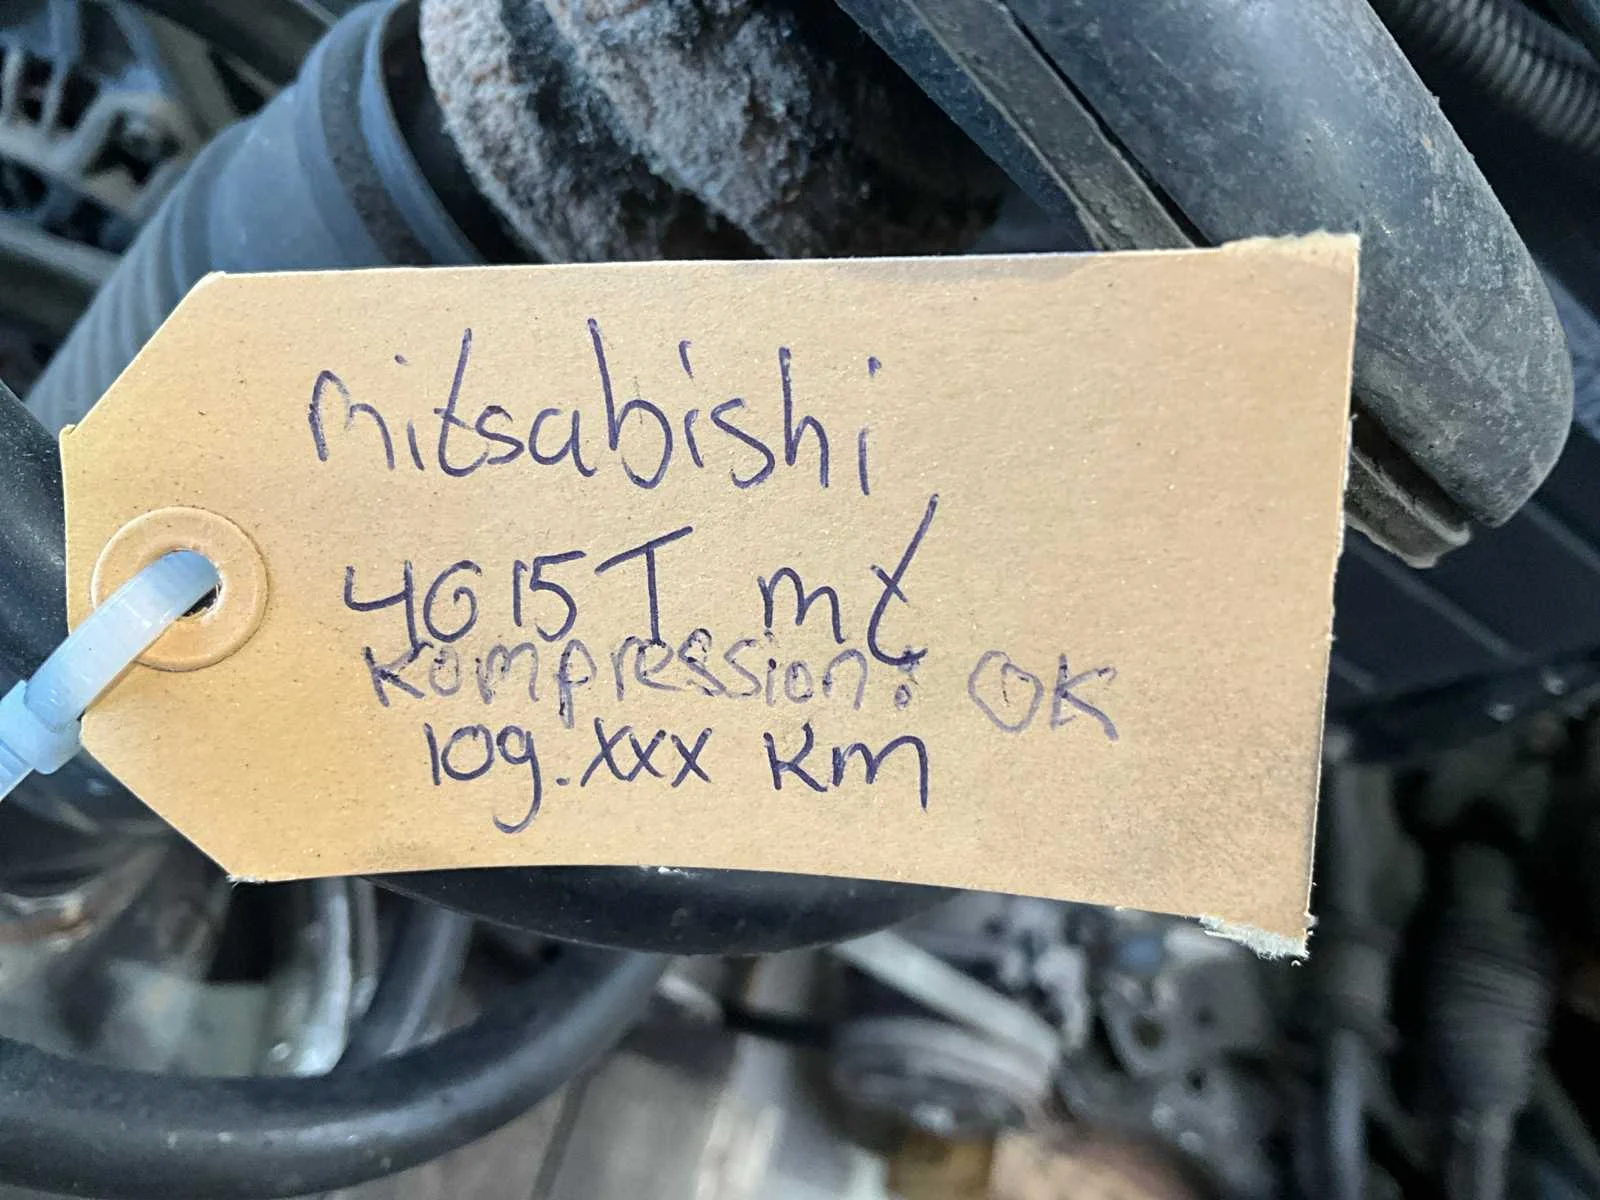 mitsabishi
4G15T mX
Kompression: OK
109.xxx Km